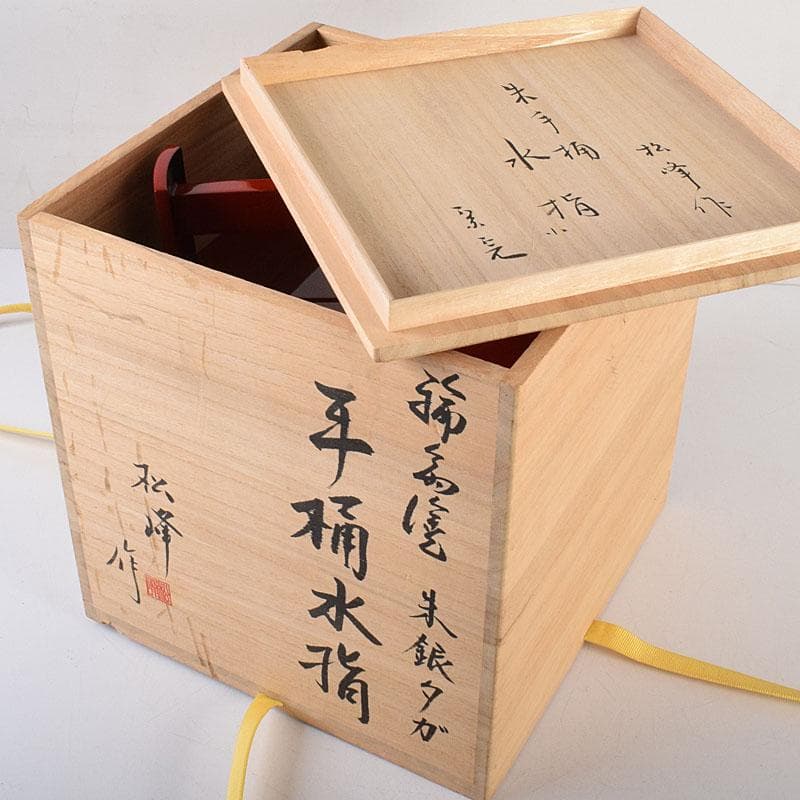 松峰作
朱手桶
水指
輪島塗 朱銀タガ
手桶水指
松峰作